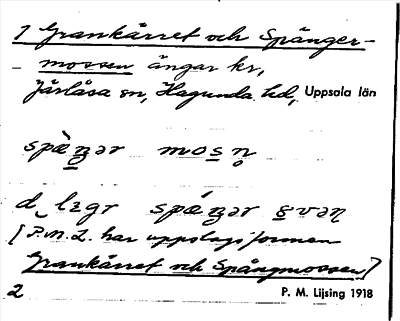 1 Grankärret och Spånger-
mossen ängar kr,
Järlåsa sn, Hagunda hd, Uppsala län
spæ̀ŋər mosn̥
d lɪgr spǽŋər
[P.M.L. har uppslagsformen
Grankärret och Spångmossen]
2 P. M. Lijsing 1918